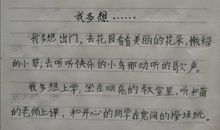 我多想……
我多想出门，去花园看看美丽的花朵，嫩绿
的小草；去听听快乐的小鸟那动听的歌声。
我多想上学，坐在明亮的教室里，听和蔼
的老师上课，和开心的同学在宽阔的操场玩。